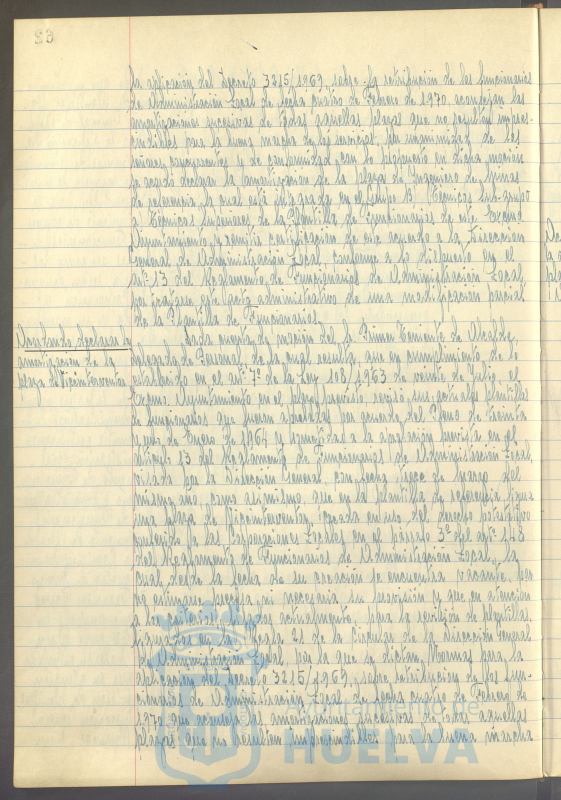 la aplicación del Decreto 3215/1969, sobre la retribución de los funcionarios
de Administración Local de fecha cuatro de Febrero de 1970, aconsejan las
amortizaciones sucesivas de todas aquellas plazas que no resulten impres-
cindibles para la buena marcha de los servicios, por unanimidad de los
señores concurrentes y de conformidad con lo propuesto en dicha moción
se acordó declarar la amortización de la plaza de Ingeniero de Minas
de referencia, la cual está integrada en el Grupo B. Técnicos, sub-grupo
a) Técnicos Superiores de la Plantilla de Funcionarios de este Excmo.
Ayuntamiento, y remitir certificación de este acuerdo a la Dirección
General de Administración Local conforme a lo dispuesto en el
artº 13 del Reglamento de Funcionarios de Administración Local
por tratarse este acto administrativo de una modificación parcial
de la Plantilla de Funcionarios.
Acordando declarar la
amortización de la
plaza de Viceinterventor
Dada cuenta de moción del Sr. Primer Teniente de Alcalde,
Delegado de Personal, de la cual resulta que en cumplimiento de lo
establecido en el artº 7º de la Ley 108/1963 de veinte de Julio, el
Excmo. Ayuntamiento en el plazo previsto revisó sus actuales plantillas
de funcionarios que fueron aprobadas por acuerdo del Pleno de treinta
y uno de Enero de 1964 y sometidas a la aprobación prevista en el
artículo 13 del Reglamento de Funcionarios de Administración Local,
visada por la Dirección General, con fecha trece de marzo del
mismo año, como asimismo, que en la plantilla de referencia figura
una plaza de Viceinterventor, creada en uso del derecho potestativo
conferido a las Corporaciones Locales en el párrafo 3º del artº 148
del Reglamento de Funcionarios de Administración Local, la
cual desde la fecha de su creación se encuentra vacante, por
no estimarse precisa, ni necesaria su provisión y que en atención
a los criterios actualmente para la revisión de plantillas,
figurados en la regla 21 de la Circular de la Dirección General
de Administración Local por la que se dictan Normas para la
aplicación del Decreto 3215/1969, sobre retribución de los fun-
cionarios de Administración Local, de fecha cuatro de Febrero de
1970 que aconseja las amortizaciones sucesivas de todas aquellas
plazas que no resulten imprescindibles para la buena marcha
Ayuntamiento de
HUELVA